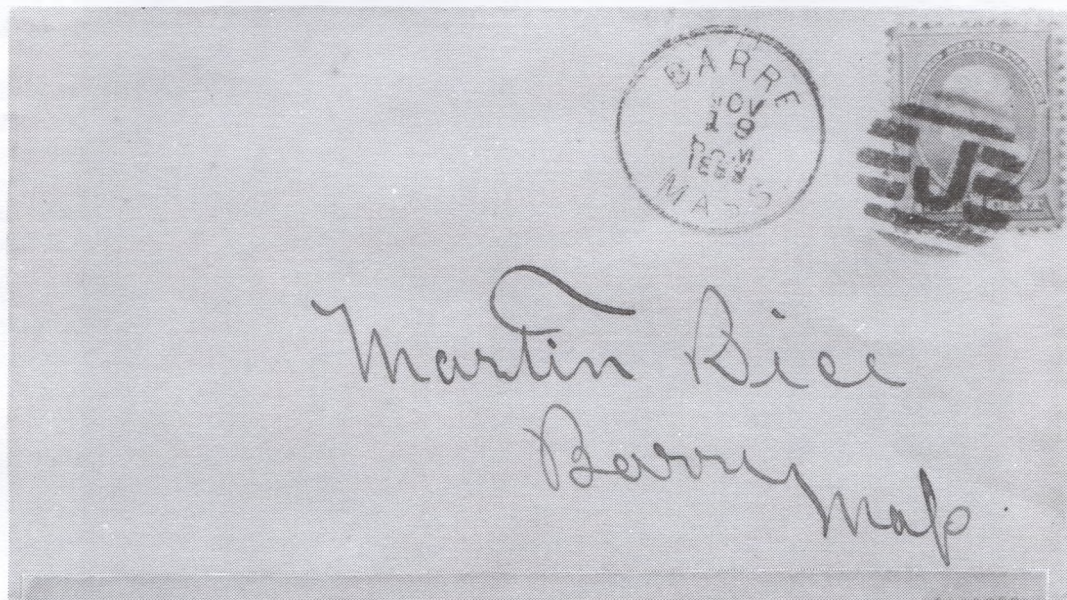 BARRE
NOV
19
MASS
J
Martin Rice
Barre
Mass.